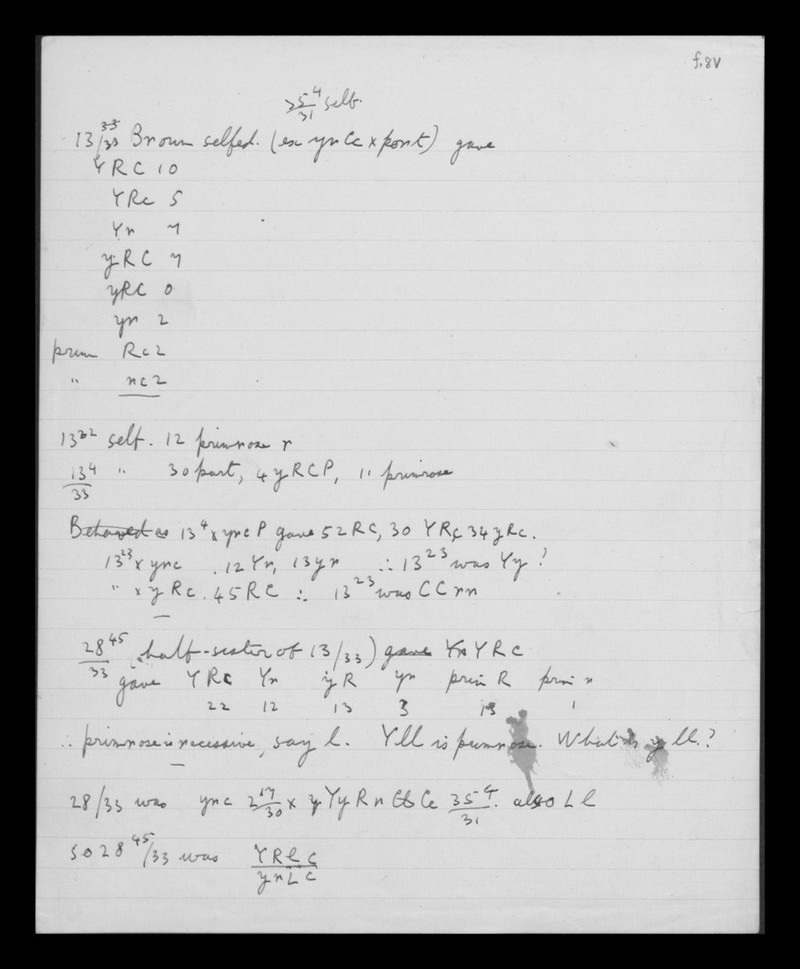 f.8v
35⁴/31 self.
13³³/33 Brown selfed. (ex yrCc x port) gave
YRC 10
YRc 5
Yr 7
yRC 7
yRC 0
yr 2
prim Rc 2
" rc 2
13²² self. 12 primrose r
13⁴/33 " 30 part, 4 yRCP, 11 primrose
Behaved as 13⁴ x yrcP gave 52 RC, 30 YRc 34 yRc.
13²³ x yrc . 12 Yr, 13 yr ∴ 13²³ was Yy?
" x yRc . 45 RC ∴ 13²³ was CC rr
28⁴⁵/33 (half-sister of 13/33) gave Yr YRc
gave YRc Yr yR yr prim R prim r
22 12 13 3 13 1
∴ primrose is recessive, say l. Yll is primrose. What is yll?
28/33 was yrc 2¹⁷/30 x YyRr Cc 35⁴/31. also Ll
So 28⁴⁵/33 was YRlc/yrLc